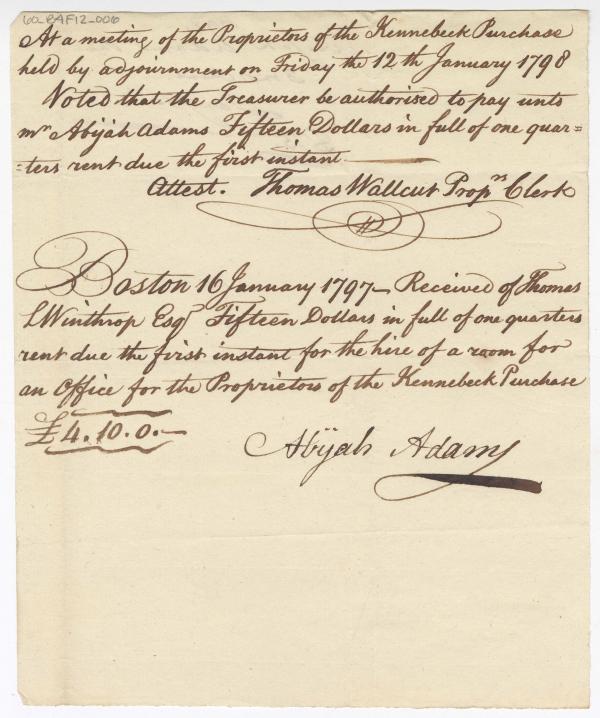 60_BAF12_006
At a meeting of the Proprietors of the Kennebeck Purchase
held by adjournment on Friday the 12th January 1798
Noted that the Treasurer be authorised to pay unto
mr Abijah Adams Fifteen Dollars in full of one quar=
=ters rent due the first instant
Attest. Thomas Wallcut Propns Clerk
Boston 16 January 1797 - Received of Thomas
L Winthrop Esqr Fifteen Dollars in full of one quarters
rent due the first instant for the hire of a room for
an Office for the Proprietors of the Kennebeck Purchase
£4.10.0.-
Abijah Adams